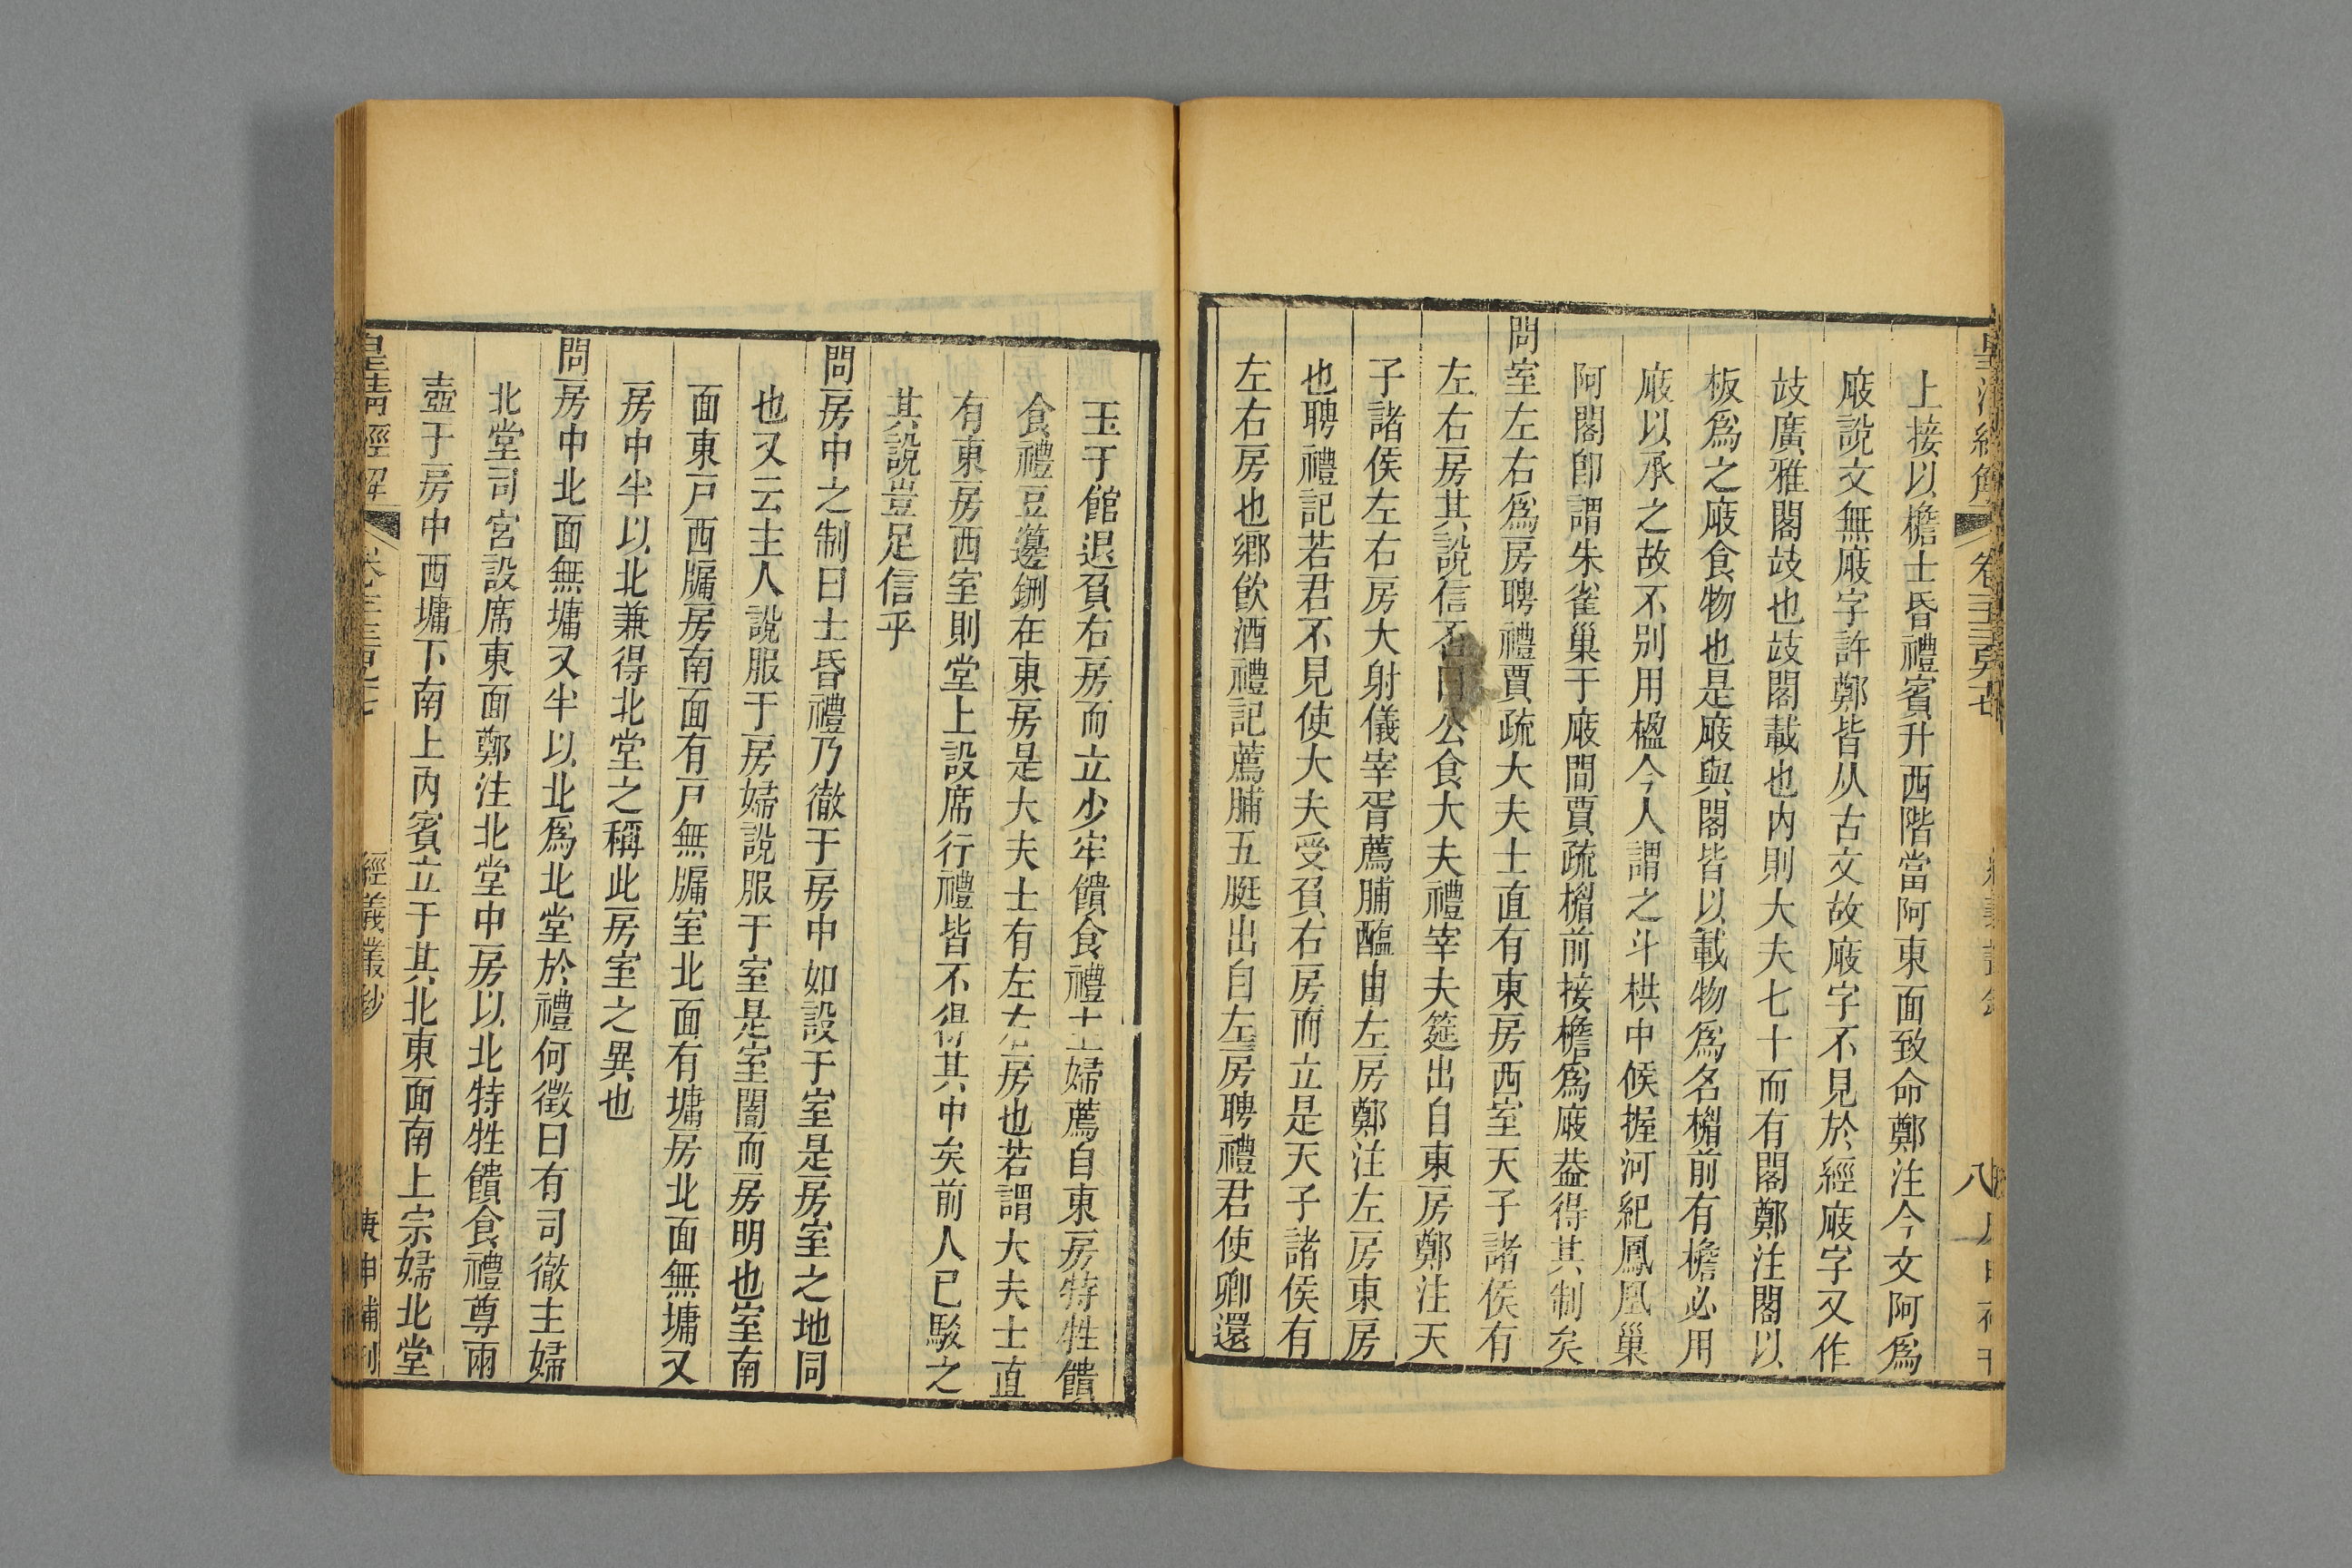 上接以檐士昏禮賓升西階當阿東面致命鄭注今文阿爲
庪說文無庪字許鄭皆从古文故庪字不見於經庪字又作
攱廣雅閣攱也攱閣載也内則大夫七十而有閣鄭注閣以
板爲之庪食物也是庪與閣皆以載物爲名楣前有檐必用
庪以承之故不别用楹今人謂之斗栱中候握河紀鳳凰巢
阿閣卽謂朱雀巢于庪間賈疏楣前接檐爲庪葢得其制矣
問室左右爲房聘禮賈疏大夫士直有東房西室天子諸侯有
左右房其說信否曰公食大夫禮宰夫筵出自東房鄭注天
子諸侯左右房大射儀宰胥薦脯醢由左房鄭注左房東房
也聘禮記若君不見使大夫受負右房而立是天子諸侯有
左右房也鄉飲酒禮記薦脯五脡出自左房聘禮君使卿還
玉于館退負右房而立少牢饋食禮主婦薦自東房特牲饋
食禮豆籩鉶在東房是大夫士有左右房也若謂大夫士直
有東房西室則堂上設席行禮皆不得其中矣前人已駁之
其說豈足信乎
問房中之制曰士昏禮乃徹于房中如設于室是房室之地同
也又云主人說服于房婦說服于室是室闇而房明也室南
面東戸西牖房南面有戸無牖室北面有墉房北面無墉又
房中半以北兼得北堂之稱此房室之異也
問房中北面無墉又半以北爲北堂於禮何徵曰有司徹主婦
北堂司宮設席東面鄭注北堂中房以北特牲饋食禮尊兩
壺于房中西墉下南上内賓立于其北東面南上宗婦北堂
皇清經解
經義叢鈔
庚申補刊